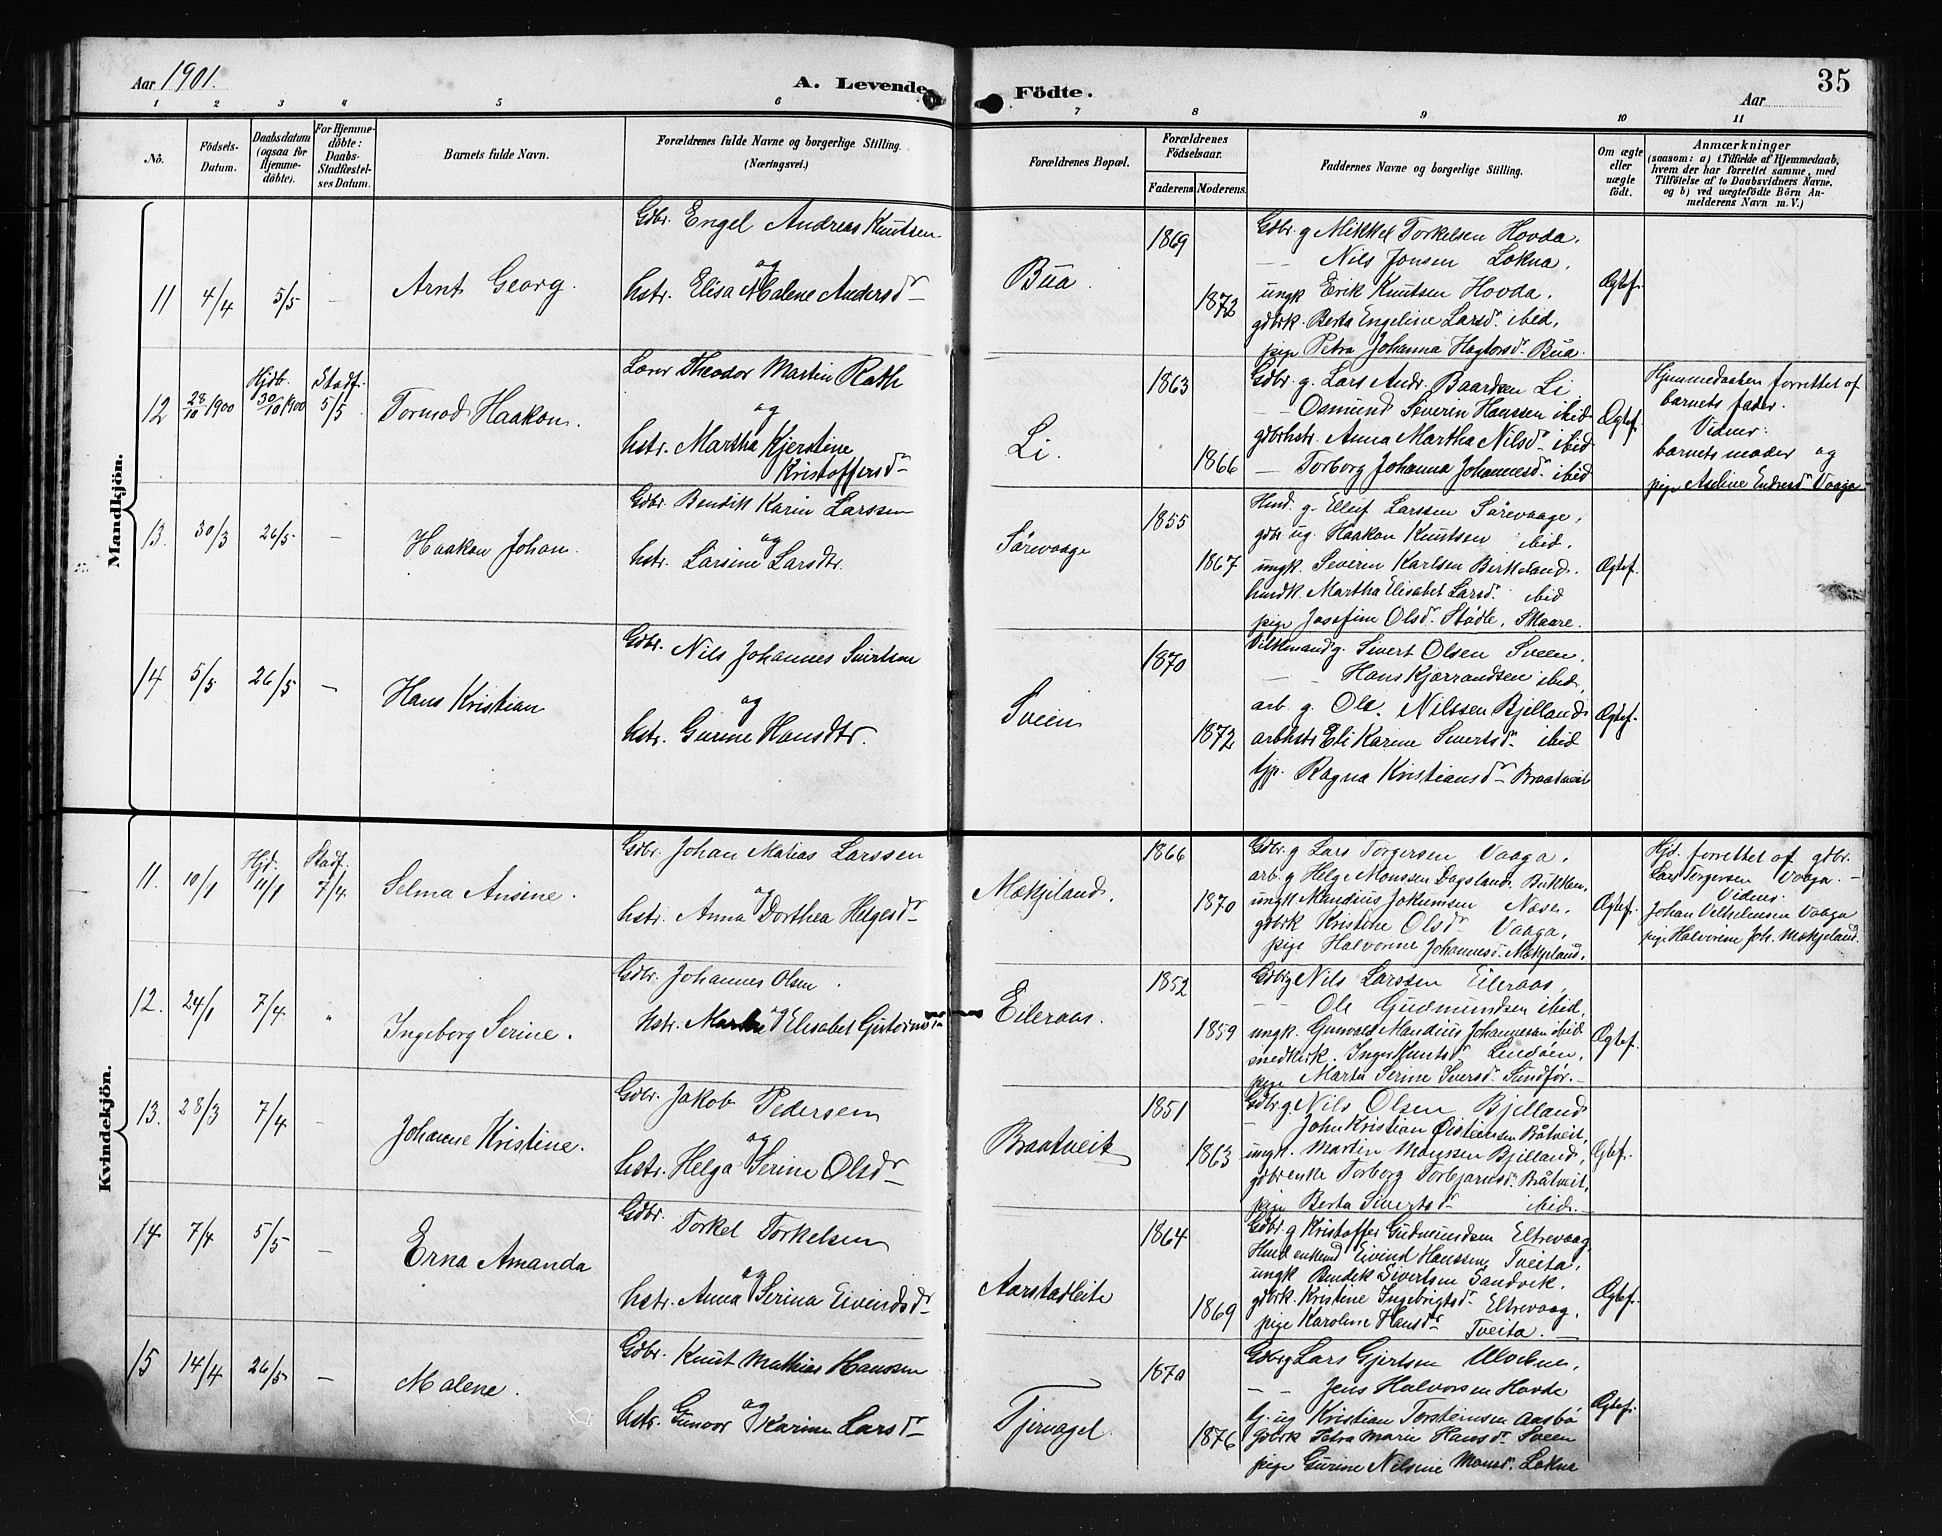 Aar 1901.
A. Levende Födte.
35
Aar
1 2 3 4 5 6 7 8 9 10 11
No.
Födsels-
Datum.
Daabsdatum
(ogsaa for
Hjemme-
döbte).
For Hjemme-
döbte:
Daabs-
Stadfæstel-
ses Datum.
Barnets fulde Navn.
Forældrenes fulde Navne og borgerlige Stilling.
(Næringsvei.)
Forældrenes Bopæl.
Forældrenes
Födselsaar.
Faderens. Moderens.
Faddernes Navne og borgerlige Stilling.
Om ægte
eller
uægte
födt.
Anmærkninger
(saasom: a) i Tilfælde af Hjemmedaab,
hvem der har forrettet samme, med
Tilföielse af to Daabsvidners Navne.
og b) ved uægtefödte Börn An-
melderens Navn m. V.)
Mandkjön.
11 4/4 5/5 – Arnt Georg.
Gdbr. Engel Andreas Knutsen
og
hstr. Elisa Malene Andersdr
Bua.
1869
1872
Gdbr. g Mikkel Torkelsen Hovda.
– – Nils Jonsen Lokna.
ungk Erik Knutsen Hovda.
gdbrk. Berta Engeline Larsd. ibid.
pige Petra Johanna Hagtorsd. Bua.
Ægtef.
12 28/10 1900 Hjdb. 30/10 1900 Stadf. 5/5 Tormod Haakon.
Lærer Theodor Martin Rath
og
hstr. Martha Kjerstine
Kristoffersdr
Li.
1863
1866
Gdbr. g. Lars Andr. Baardsen Li
– – Osmund Severin Hanssen ibid
gdbrhstr. Anna Martha Nilsdr ibid
– Torborg Johanna Johannesdr ibid
Ægtef.
Hjemmedaaben forrettet af
barnets fader.
Vidner:
barnets moder og
pige Aseline Endresdr Vaaga
13. 30/3 26/5 – Haakon Johan.
Gdbr. Bendik Karin Larssen
og
hstr. Larsine Larsdtr.
Sørevaage
1855
1867
Husm. g. Ellef Larssen Sørevaage,
gdbr ug. Haakon Knutsen ibid.
ungk. Severin Karlsen Birkeland.
husmk. Martha Elisabet Larsd. ibid
pige Josefine Olsdr. Stødle, Skaare.
Ægtef.
14 5/5 26/5 – Hans Kristian
Gdbr. Nils Johannes Sivertsen
og
hstr. Gurine Hansdtr.
Svein
1870
1872
Vilkmand g. Sivert Olsen Sveen.
– – Hans Kjærrandsen ibid.
arb. g. Ole. Nilssen Bjelland
arbhstr Eli Karine Sivertsdr ibid
tjp. Ragna Kristiansdr Braatveit
Ægtef.
Kvindekjön.
11. 10/1 Hjd. 11/1 Stadf. 7/4 Selma Ansine.
Gdbr. Johan Matias Larssen
og
hstr. Anna Dorthea Helgesdr
Mækjeland.
1866
1870
Gdbr. g Lars Torgersen Vaaga.
arb. g Helge Monssen Dagsland. Bukken.
ungk Mandius Jokumsen Nese.
gdbrk Kristine Olsdr Vaaga,
pige Halvorine Johannesd. Mækjeland.
Ægtef.
Hjd. forrettet af gdbr.
Lars Torgersen Vaaga.
Vidner:
Johan Vilhelmsen Vaaga
pige Halvorine Joh. Mækjeland.
12. 24/1 7/4 " Ingeborg Serine.
Gdbr. Johannes Olsen.
og
hstr. Marthe Elisabet
Eileraas.
1852
1859
Gdbr g Nils Larssen Eileraas,
– Ole Gudmundsen ibid,
ungk. Gunvald Mandius Johannesen ibid
smedkirk. Inger Knutsdr Lindøen.
pige Marta Serine Iversdr. Sundfør.
Ægtef.
13. 28/3 7/4 – Johanne Kristine.
Gdbr. Jakob Pedersen
og
hstr. Helga Serine Olsdr
Braatveit
1851
1863
Gdbr. g. Nils Olsen Bjelland
– John Kristian Øisteinsen Båtveit,
ungk. Martin Monssen Bjelland,
gdbrenke Torborg Torbjørnsd. Båtveit,
pige Berta Sivertsdr ibid.
Ægtef.
14. 7/4 5/5 – Erna Amanda
Gdbr. Torkel Torkelsen
og
hstr. Anna Serina Eivindsdr
Aarstadleite
1864
1869
Gdbr. g Kristoffer Gudmundsen Eltrevaag
Husm enkem Eivind Hanssen Tveita,
ungk Bendik Sivertsen Sandvik.
gdbrk. Kristine Ingebrigtsd. Eltrevaag.
pige Karoline Hansdr Tveita.
Ægtef.
15 14/4 26/5 – Malene.
Gdbr. Knut Mathias Hanssen
og
hstr. Gunvor Karine Larsdr
Tjernagel.
1870
1876
Gdbr g Lars Gjertsen Ulveken,
– – Jens Halvorsen Hovde
G. ug Kristian Torsteinsen Aasbø
Gdbrk Petra Marie Hansdr. Sveen
pige Gurine Nilsine Monsd. Lokna
Ægtef.